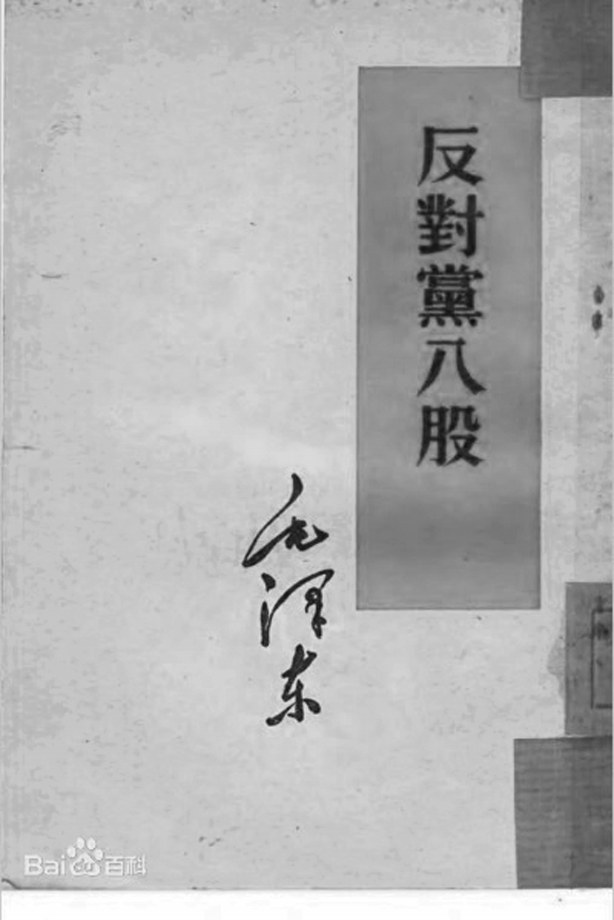 反對黨八股
毛泽东
Bai百科